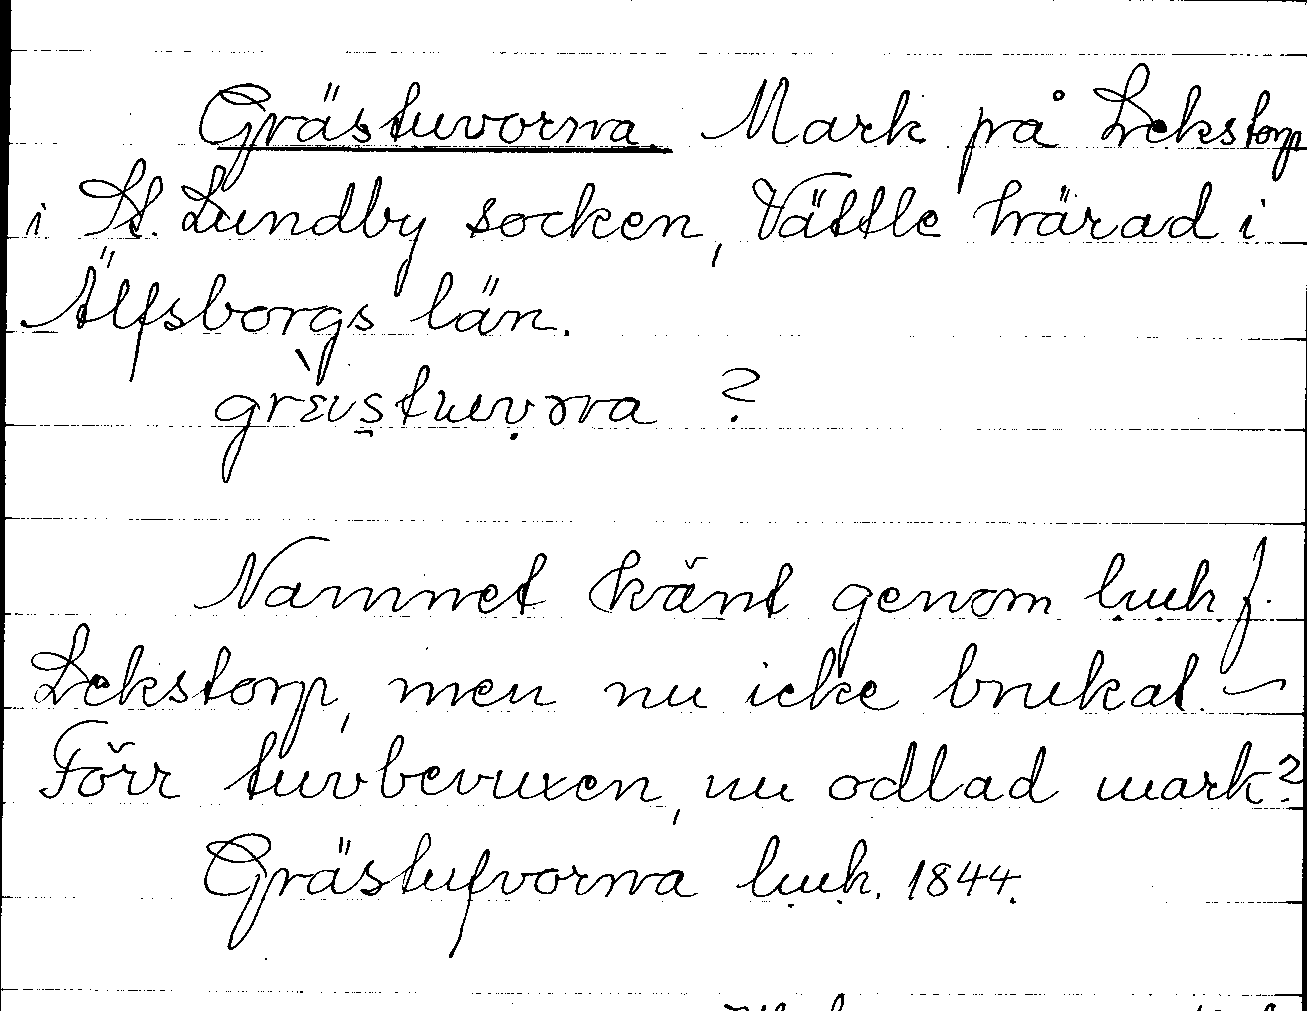 Grästuvorna. Mark på Lekstorp
i St. Lundby socken, Vättle härad i
Älfsborgs län.
grä̀stuvorna ?
Namnet känt genom luuk f.
Lekstorp, men nu icke brukat. –
Förr tuvbevuxen, nu odlad mark?
Grästufvorna luuk. 1844.